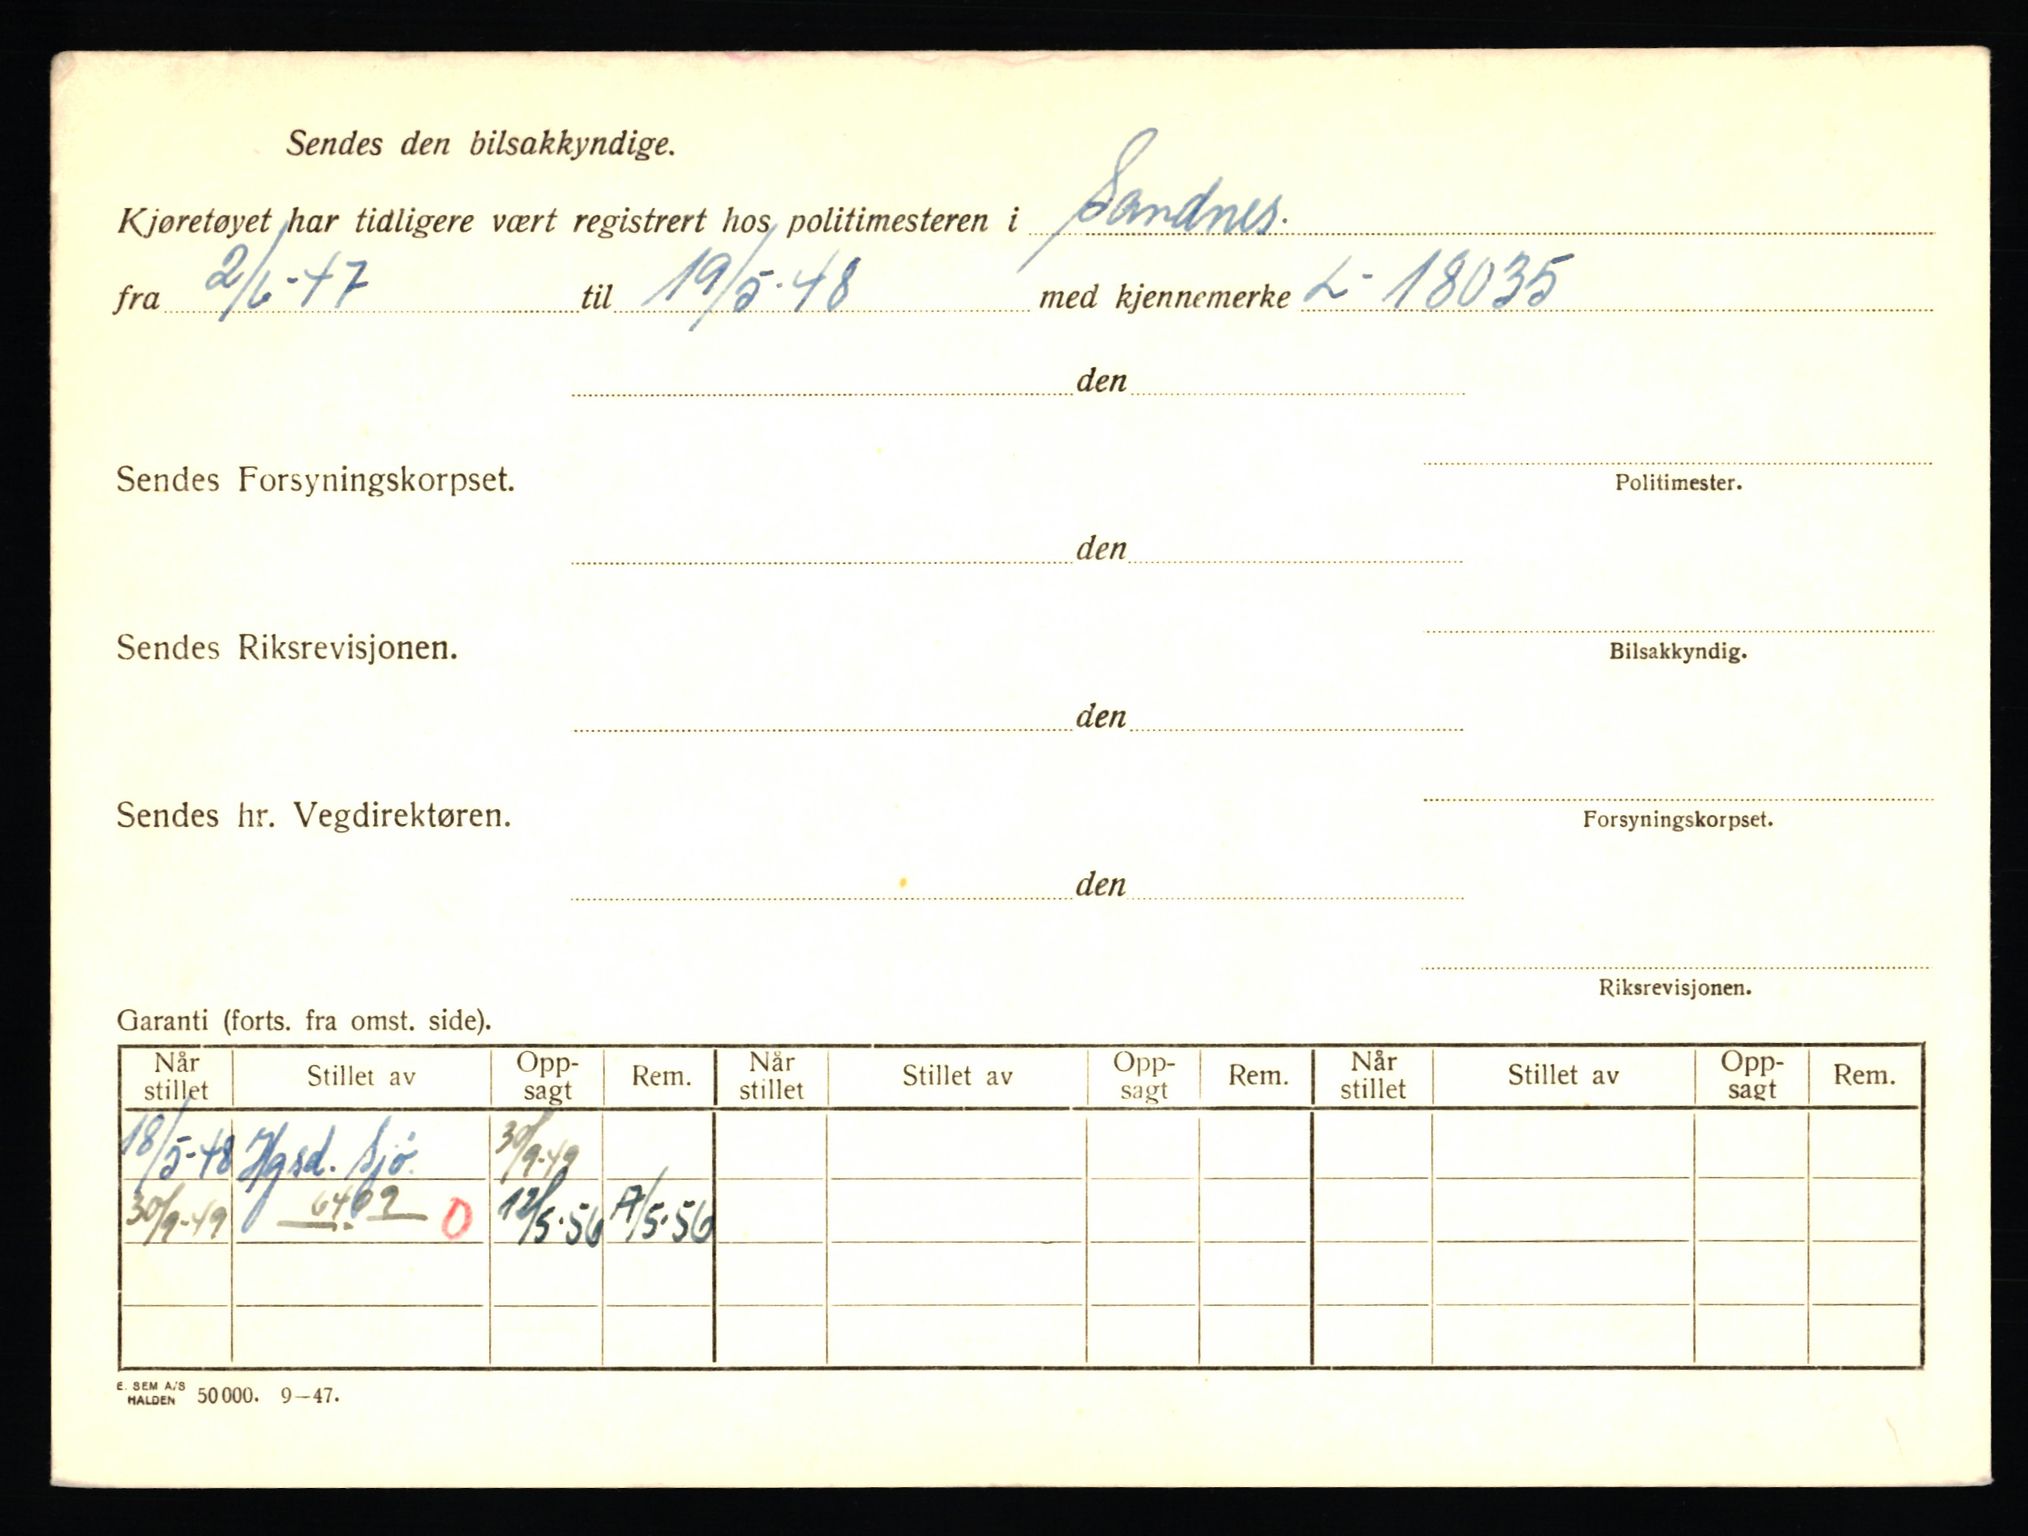 Sendes den bilsakkyndige.
Kjøretøyet har tidligere vært registrert hos politimesteren i Sandnes.
fra 2/6-47 til 19/5-48 med kjennemerke L-18035
den
Sendes Forsyningskorpset.
Politimester.
den
Sendes Riksrevisjonen.
Bilsakkyndig.
den
Sendes hr. Vegdirektøren.
Forsyningskorpset.
den
Riksrevisjonen.
Garanti (forts. fra omst. side).
Når stillet Stillet av Opp-sagt Rem. Når stillet Stillet av Opp-sagt Rem. Når stillet Stillet av Opp-sagt Rem.
18/5-48 Hgsd. Sjø. 30/9-49
30/9-49 6409 0 12/5-56 /5-56
E. SEM A/S HALDEN 50 000. 9-47.